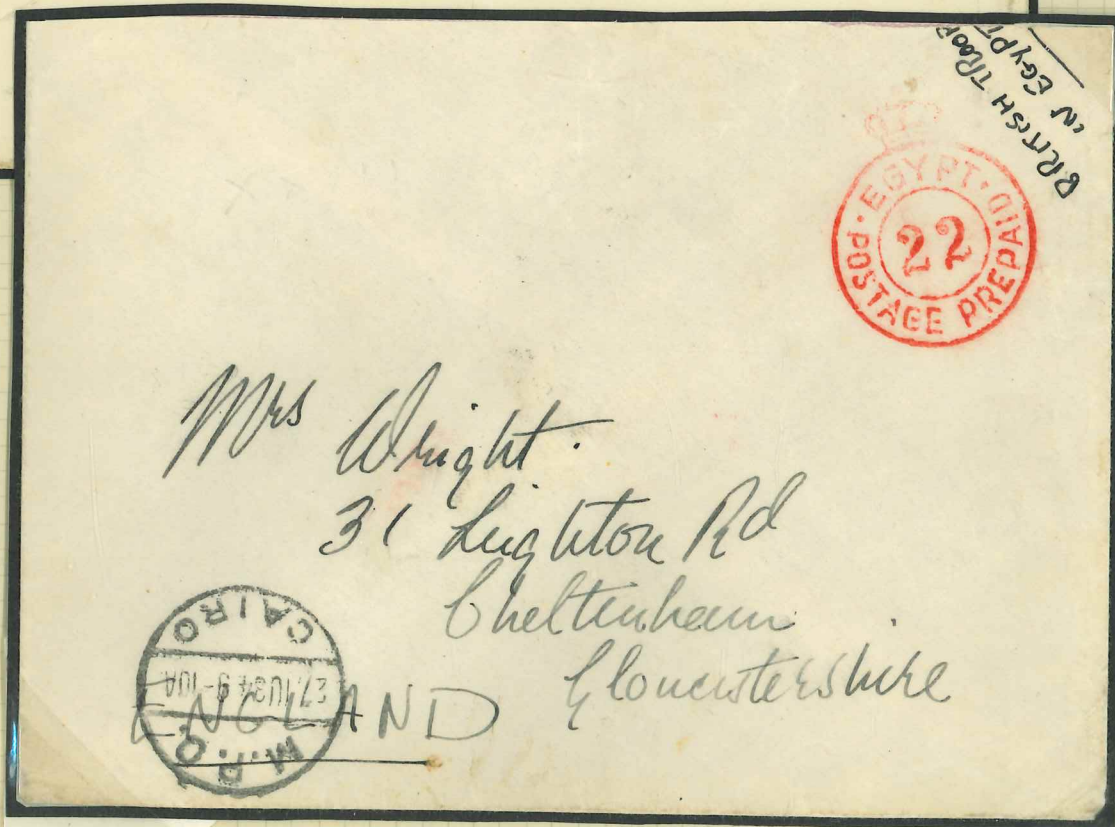 BRITISH TROOPS
IN EGYPT
EGYPT
22
POSTAGE PREPAID
Mrs Wright.
31 Leighton Rd
Cheltenham
Gloucestershire
ENGLAND
CAIRO
9-10A